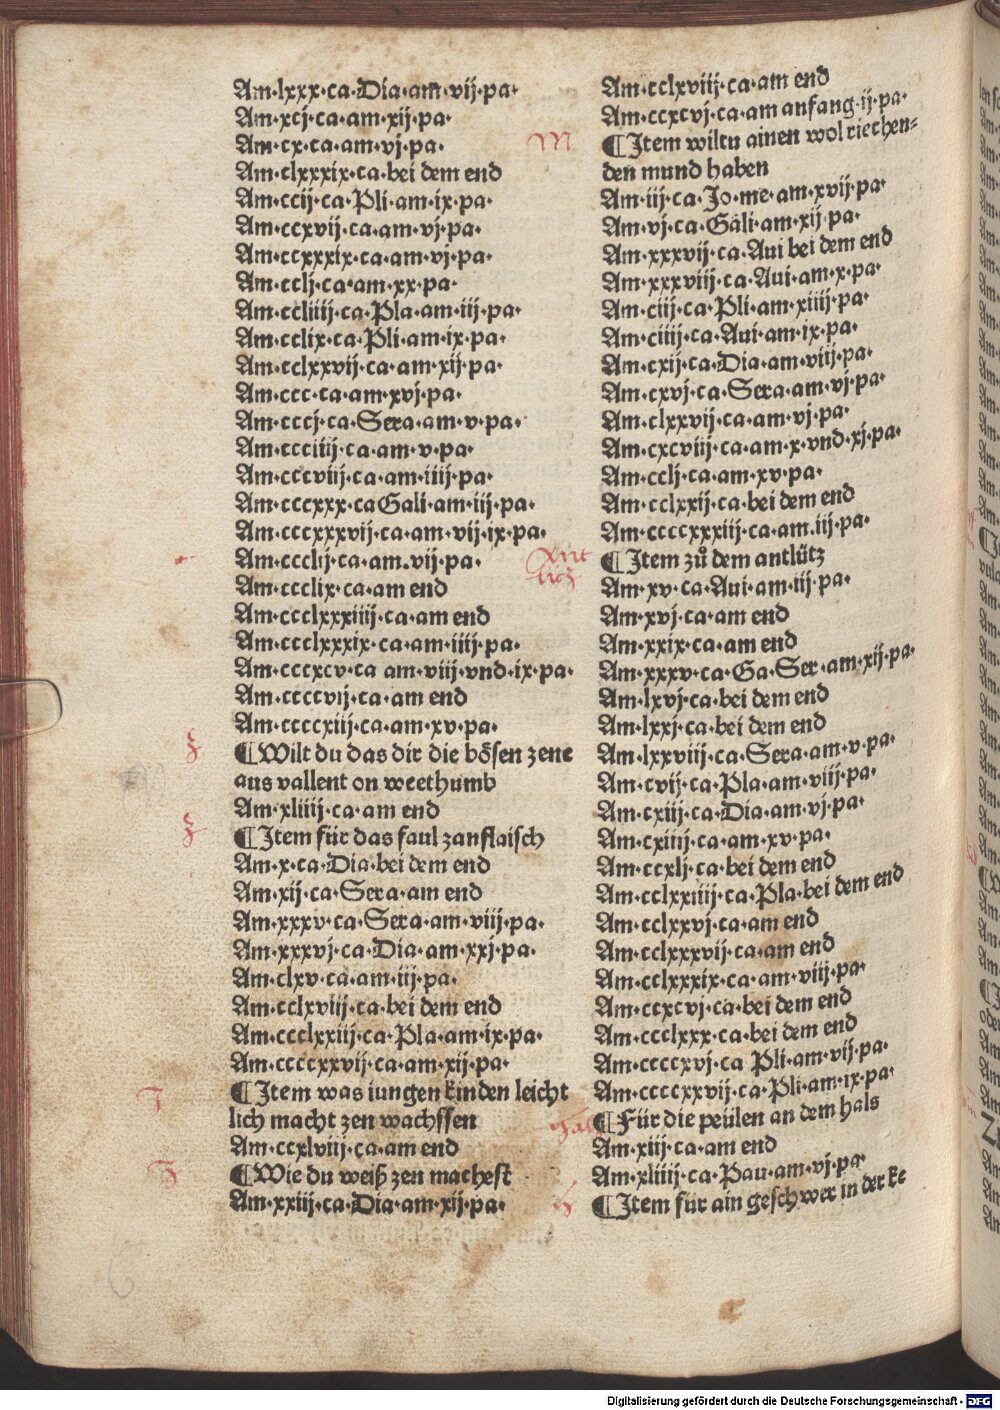 Am·lxxx·ca·Dia·am·vij·pa·
Am·xcj·ca·am·xij·pa·
Am·cx·ca·am·vj·pa·
Am·clxxxix·ca·bei dem end
Am·ccij·ca·Pli·am·ix·pa·
Am·ccxvij·ca·am·vj·pa·
Am·ccxxxix·ca·am·vj·pa·
Am·cclj·ca·am·xx·pa·
Am·ccliiij·ca·Pla·am·iij·pa·
Am·cclix·ca·Pli·am·ix·pa·
Am·cclxxvij·ca·am·xij·pa·
Am·ccc·ca·am·xvj·pa·
Am·cccj·ca·Sera·am·v·pa·
Am·ccciiij·ca·am·v·pa·
Am·cccviij·ca·am·iiij·pa·
Am·cccxxx·ca Gali·am·iij·pa·
Am·cccxxxvij·ca·am·vij·ix·pa·
Am·ccclij·ca·am·vij·pa·
Am·ccclix·ca·am end
Am·ccclxxxiiij·ca·am end
Am·ccclxxxix·ca·am·iiij·pa·
Am·cccxcv·ca am·viij·vnd·ix·pa·
Am·ccccvij·ca·am end
Am·ccccxiij·ca·am·xv·pa·
¶Wilt du das dir die bösen zene
aus vallent on weethumb
Am·xliiij·ca·am end
¶Item für das faul zanflaisch
Am·x·ca·Dia·bei dem end
Am·xij·ca·Sera·am end
Am·xxxv·ca·Sera·am·viij·pa·
Am·xxxvj·ca·Dia·am·xxj·pa·
Am·clxv·ca·am·iij·pa·
Am·cclxviij·ca·bei dem end
Am·ccclxxiij·ca·Pla·am·ix·pa·
Am·ccccxxvij·ca·am·xij·pa·
¶Item was iungen kinden leicht
lich macht zen wachssen
Am·ccxlviij·ca·am end
¶Wie du weiß zen machest
Am·xxiij·ca·Dia·am·xij·pa·
Am·cclxviij·ca·am end
Am·ccxcvj·ca·am anfang·ij·pa·
M
¶Item wiltu ainen wol riechen⸗
den mund haben
Am·iij·ca·Jo·me·am·xvij·pa·
Am·vj·ca·Gali·am·xij·pa·
Am·xxxvij·ca·Aui bei dem end
Am·xxxviij·ca·Aui·am·x·pa·
Am·ciij·ca·Pli·am·xiiij·pa·
Am·ciiij·ca·Aui·am·ix·pa·
Am·cxij·ca·Dia·am·viij·pa·
Am·cxvj·ca·Sera·am·vj·pa·
Am·clxxvij·ca·am·vj·pa·
Am·cxcviij·ca·am·x·vnd·xj·pa·
Am·cclj·ca·am·xv·pa·
Am·cclxxij·ca·bei dem end
Am·ccccxxxiij·ca·am·iij·pa·
Ant
litz
¶Item zů dem antlütz
Am·xv·ca·Aui·am·iij·pa·
Am·xvj·ca·am end
Am·xxix·ca·am end
Am·xxxv·ca·Ga·Ser·am·xij·pa·
Am·lxvj·ca·bei dem end
Am·lxxj·ca·bei dem end
Am·lxxviij·ca·Sera·am·v·pa·
Am·cvij·ca·Pla·am·viij·pa·
Am·cxiij·ca·Dia·am·vj·pa·
Am·cxiiij·ca·am·xv·pa·
Am·ccxlj·ca·bei dem end
Am·cclxxiiij·ca·Pla·bei dem end
Am·cclxxvj·ca·am end
Am·cclxxxvij·ca·am end
Am·cclxxxix·ca·am·viij·pa·
Am·ccxcvj·ca·bei dem end
Am·ccclxxx·ca·bei dem end
Am·ccccxvj·ca Pli·am·vij·pa·
Am·ccccxxvij·ca·Pli·am·ix·pa·
¶Für die peülen an dem hals
Am·xiij·ca·am end
Am·xliiij·ca·Pau·am·vj·pa·
¶Item für ain geschwer in der ke
Digitalisierung gefördert durch die Deutsche Forschungsgemeinschaft - DFG